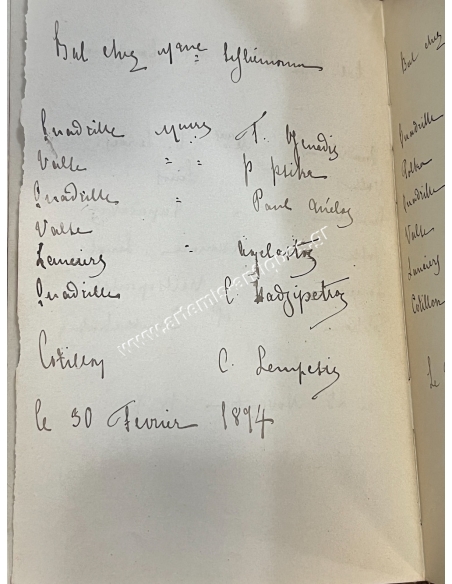 Bal chez Mme Schliemann
Quadrille Messrs T.
Valse " " P
Quadrille " Paul Mélas
Valse
Lanciers "
Quadrille C. Hadzipetros
Cotillon C. Lempesis
le 30 Fevrier 1894
Bal chez
Quadrille
Polka
Quadrille
Valse
Lanciers
Cotillon
Le